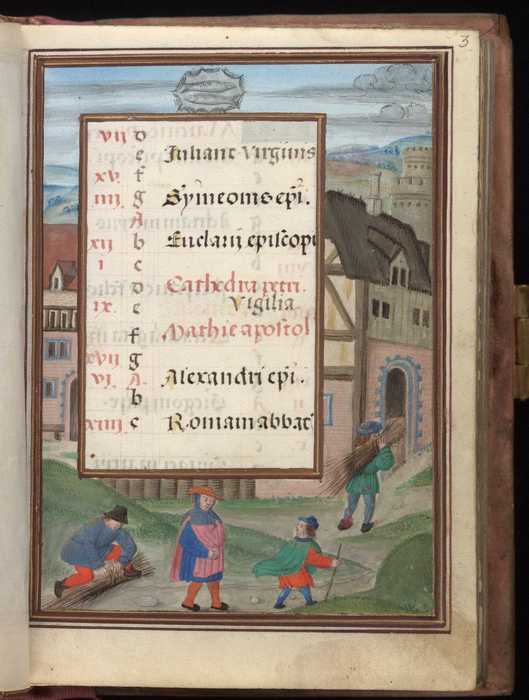 3
vij d
e Juliane virginis
xv f
iiij g Symeonis epi.
A
xij b Euclarij episcopi
i c
d Cathedra petri.
ix e Vigilia
f Mathie apostol
xvij g
vj A Alexandri epi.
b
xiiij c Romani abbat